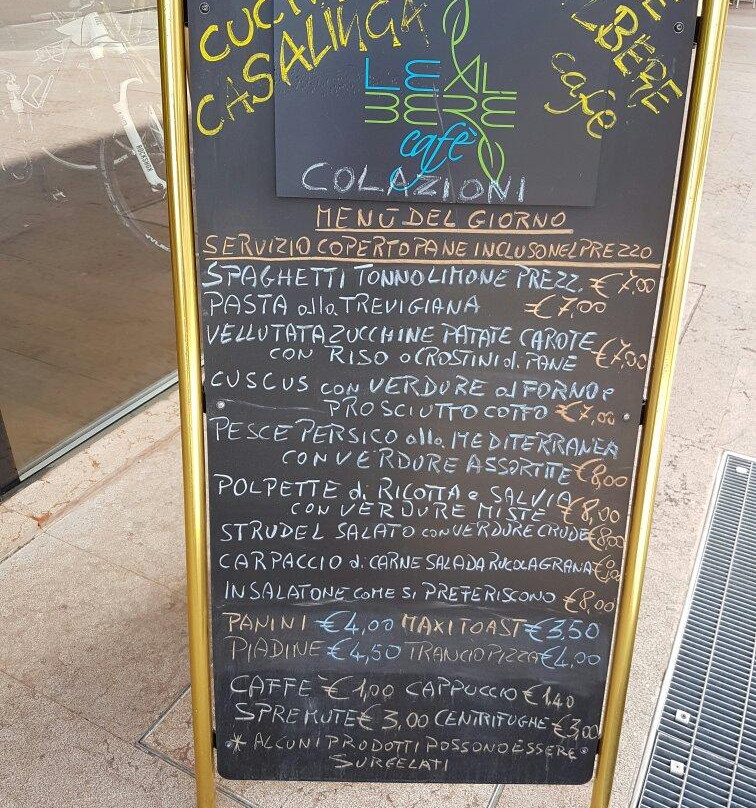 CUCINA
CASALINGA
ALBERE
cafè
LE AL
BERE
cafè
COLAZIONI
MENÙ DEL GIORNO
SERVIZIO COPERTO PANE INCLUSO NEL PREZZO
SPAGHETTI TONNO LIMONE PREZZ. €7,00
PASTA alla TREVIGIANA €7,00
VELLUTATA ZUCCHINE PATATE CAROTE
CON RISO o CROSTINI di PANE €7,00
CUSCUS con VERDURE al FORNO e
PROSCIUTTO COTTO €7,00
PESCE PERSICO alla MEDITERRANEA
CON VERDURE ASSORTITE €8,00
POLPETTE di RICOTTA e SALVIA
CON VERDURE MISTE €8,00
STRUDEL SALATO con VERDURE CRUDE €8,00
CARPACCIO di CARNE SALADA RUCOLA GRANA
INSALATONE COME SI PREFERISCONO €8,00
PANINI €4,00 MAXITOAST €3,50
PIADINE €4,50 TRANCIO PIZZA €4,00
CAFFÈ €1,00 CAPPUCCIO €1,40
SPREMUTE €3,00 CENTRIFUGHE €3,00
* ALCUNI PRODOTTI POSSONO ESSERE
SURGELATI